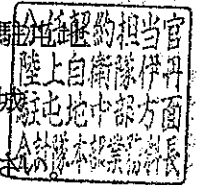 駐屯地
分任契約担当官
陸上自衛隊伊丹
駐屯地中部方面
会計隊本部業務科長
城